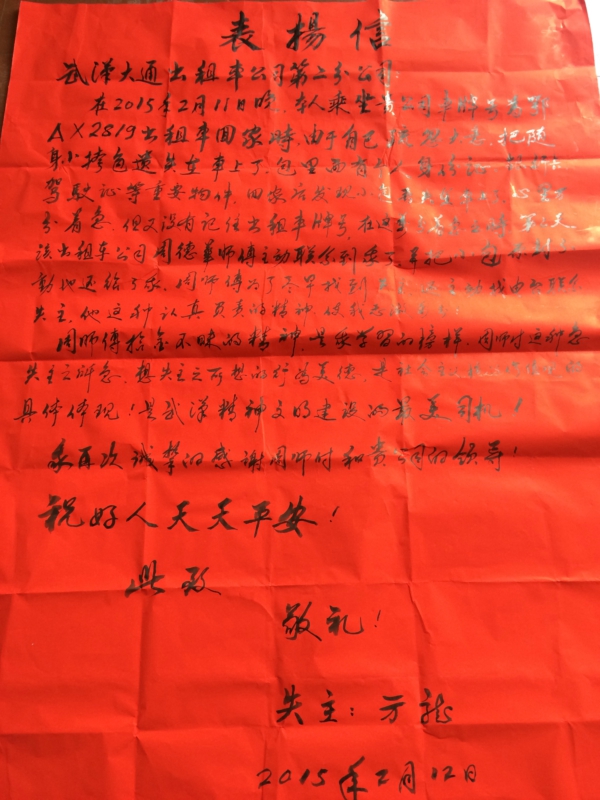 表揚信
武汉大通出租车公司第二分公司:
在2015年2月11日晚,本人乘坐贵公司车牌号为鄂
AX2819出租车回家时,由于自己 把随
身小挎包遗失在车上了,包里面有
驾驶证等重要物件,回家后发现小包 心里十
分着急,但又没有记住出租车牌号,在这 第二天
该出租车公司周德華师傅主动联系到
还给了我,周师傅为了尽早找到失主 联系
失主,他这种认真负责的精神,使我
周师傅拾金不昧的精神,是我学习的榜样,周师付这种急
失主之所急,想失主之所想的行为美德,是社会主义
具体体现!是武汉精神文明建设的最美司机!
我再次诚挚的感谢周师付和贵公司的领导!
祝好人天天平安!
此致
敬礼!
失主:方龙
2015年2月12日